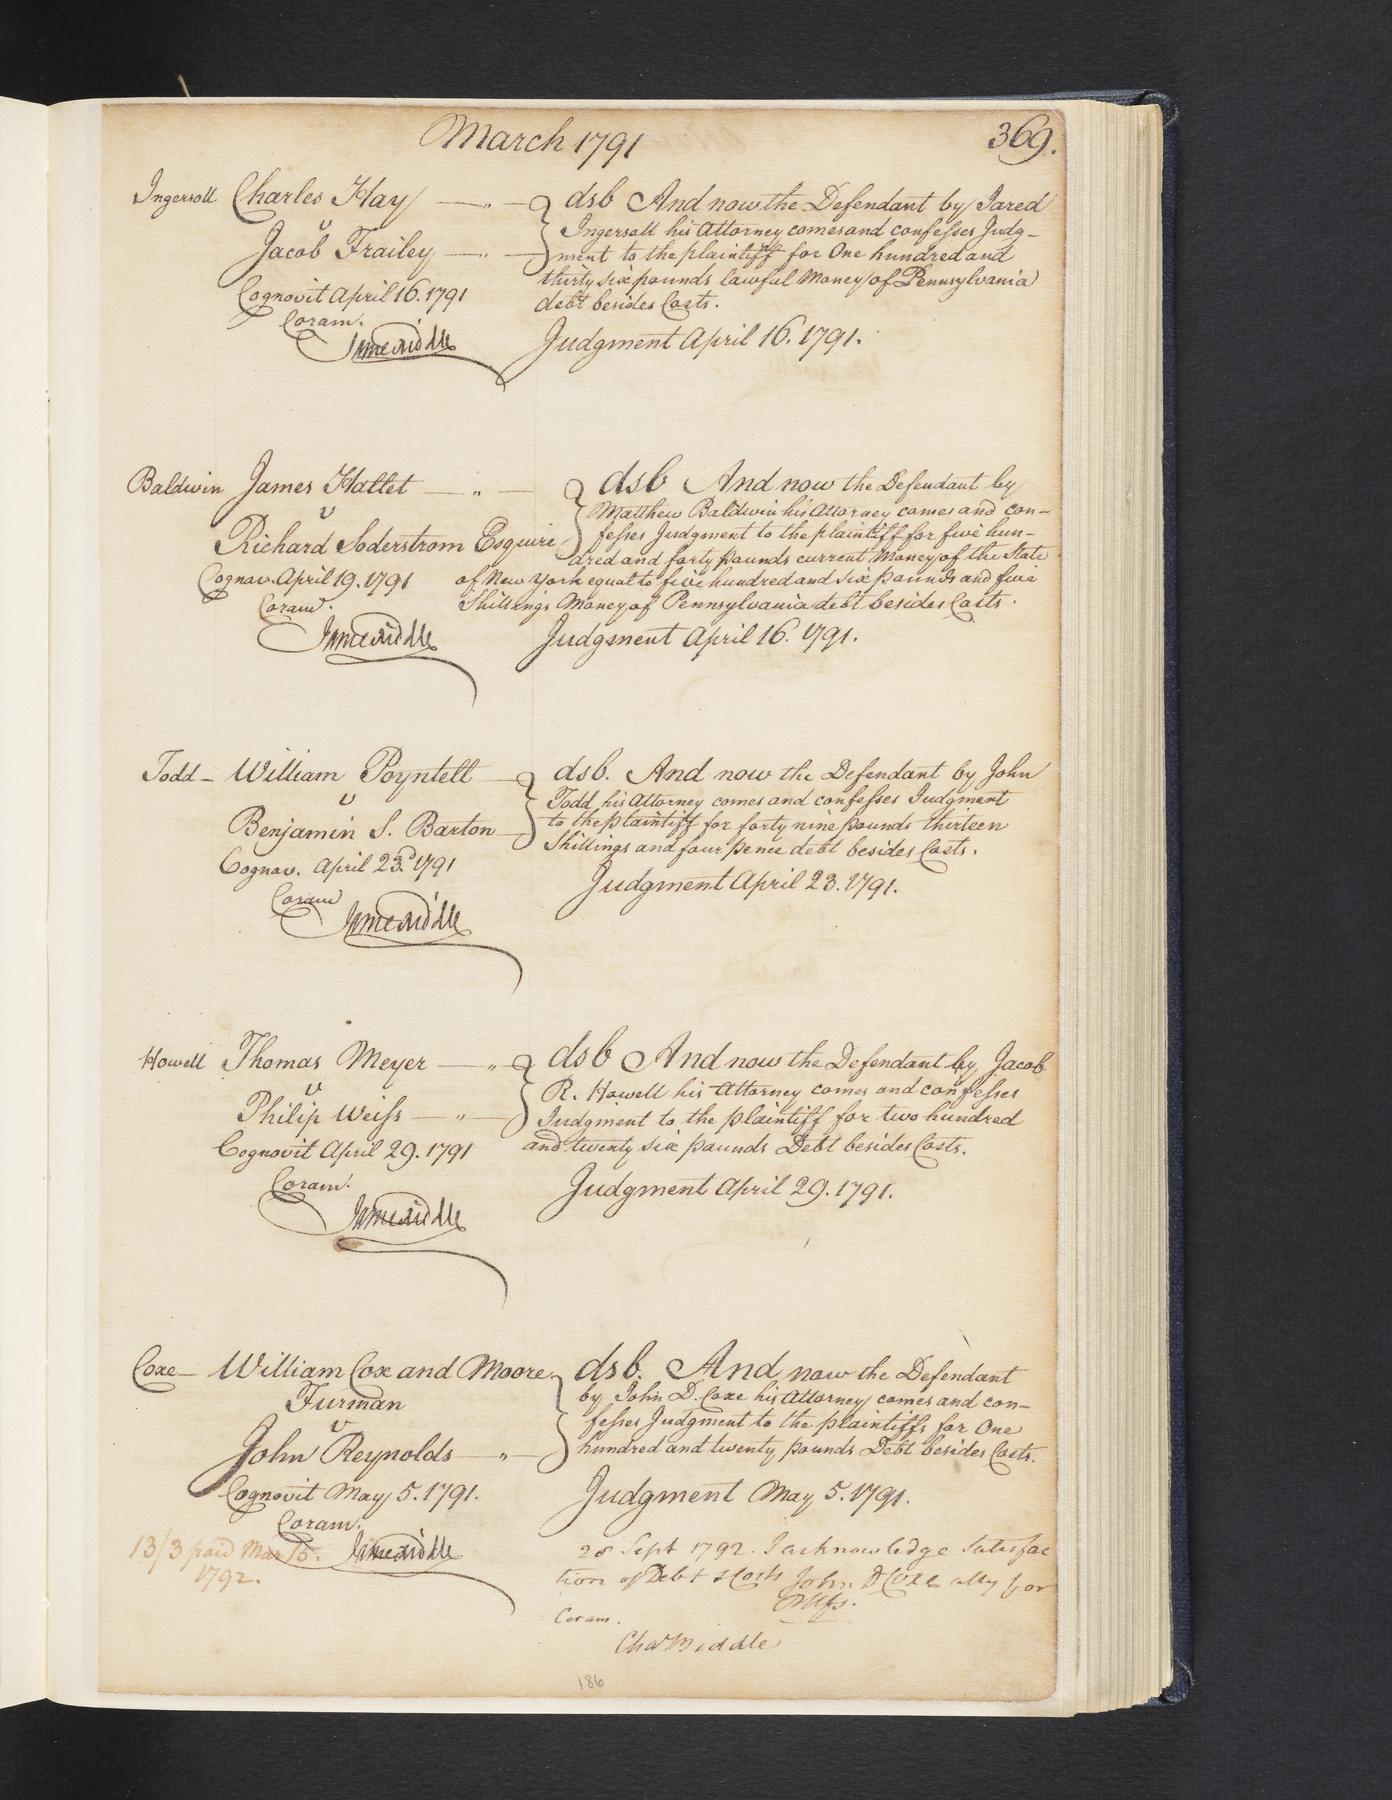 March 1791
369.
Ingersoll Charles Hay dsb And now the Defendant by Jared
v Ingersoll his Attorney comes and confesses Judg-
Jacob Frailey ment to the plaintiff for One hundred and
Cognovit April 16. 1791 thirty six pounds lawful Money of Pennsylvania
Coram. debt besides Costs.
Judgment April 16. 1791.
Baldwin James Hallet dsb And now the Defendant by
v Matthew Baldwin his Attorney comes and con-
Richard Soderstrom Esquire fesses Judgment to the plaintiff for five hun-
dred and forty pounds current Money of the State
Cognov. April 19. 1791 of New York equal to five hundred and six pounds and five
Coram. Shillings Money of Pennsylvania debt besides Costs.
Judgment April 16. 1791.
Todd William Poyntell dsb. And now the Defendant by John
v Todd his Attorney comes and confesses Judgment
Benjamin S. Barton to the plaintiff for forty nine pounds thirteen
Cognov. April 23d. 1791 Shillings and four pence debt besides Costs.
Coram Judgment April 23. 1791.
Howell Thomas Meyer dsb And now the Defendant by Jacob
v R. Howell his Attorney comes and confesses
Philip Weiss Judgment to the plaintiff for two hundred
Cognovit April 29. 1791 and twenty six pounds Debt besides Costs.
Coram. Judgment April 29. 1791.
Coxe William Cox and Moore dsb. And now the Defendant
Furman by John D. Coxe his Attorney comes and con-
v fesses Judgment to the plaintiffs for One
John Reynolds hundred and twenty pounds Debt besides Costs.
Cognovit May 5. 1791. Judgment May 5. 1791.
Coram.
13/3 paid Mar 15. 28 Sept 1792. I acknowledge Satisfac
1792. tion of Debt & Costs John D Coxe atty for
Pltfs.
Coram.
Chas Biddle
186